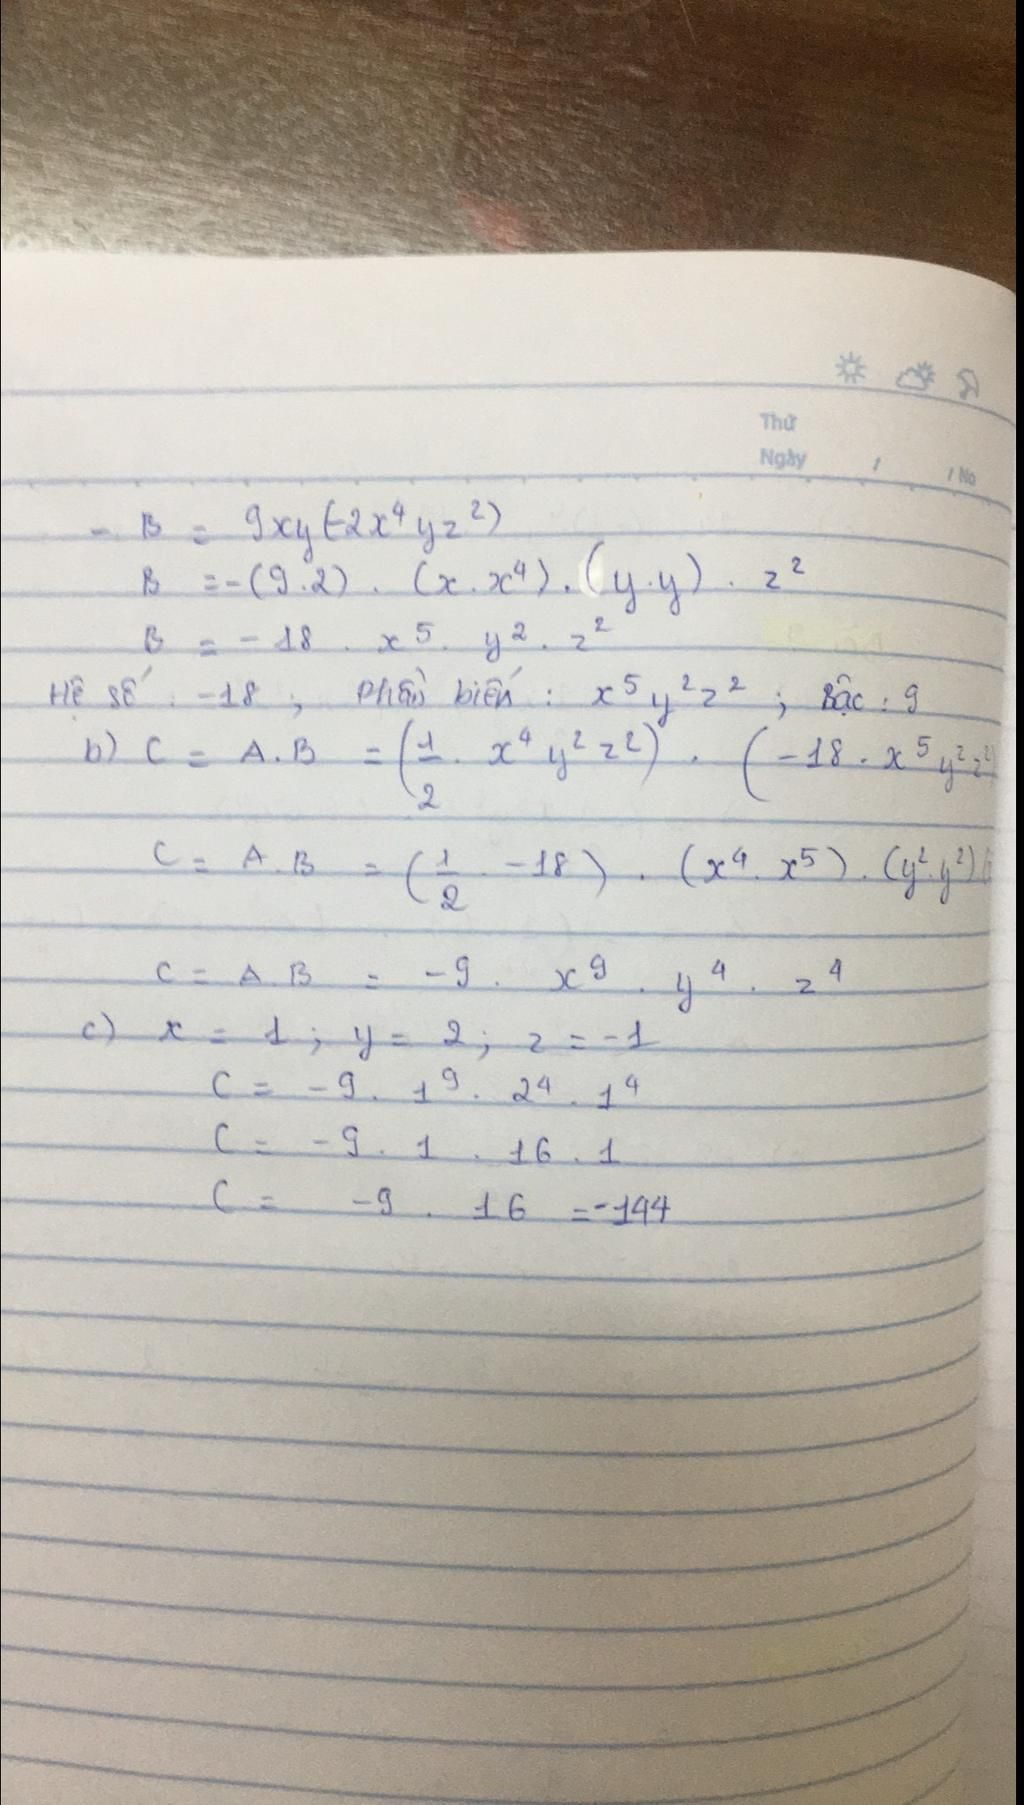 Thứ
Ngày / / No
- B = 9xy(-2x⁴yz²)
B = -(9.2) . (x.x⁴).(y.y) . z²
B = -18 . x⁵ . y² . z²
Hệ số : -18 ; Phần biến : x⁵y²z² ; Bậc : 9
b) C = A.B = (1/2 . x⁴y²z²) . (-18 . x⁵y²z²)
C = A.B = (1/2 . -18) . (x⁴.x⁵).(y².y²)(
C = A.B = -9 . x⁹ . y⁴ . z⁴
c) x = 1 ; y = 2 ; z = -1
C = -9 . 1⁹ . 2⁴ . 1⁴
C = -9 . 1 . 16 . 1
C = -9 . 16 = -144